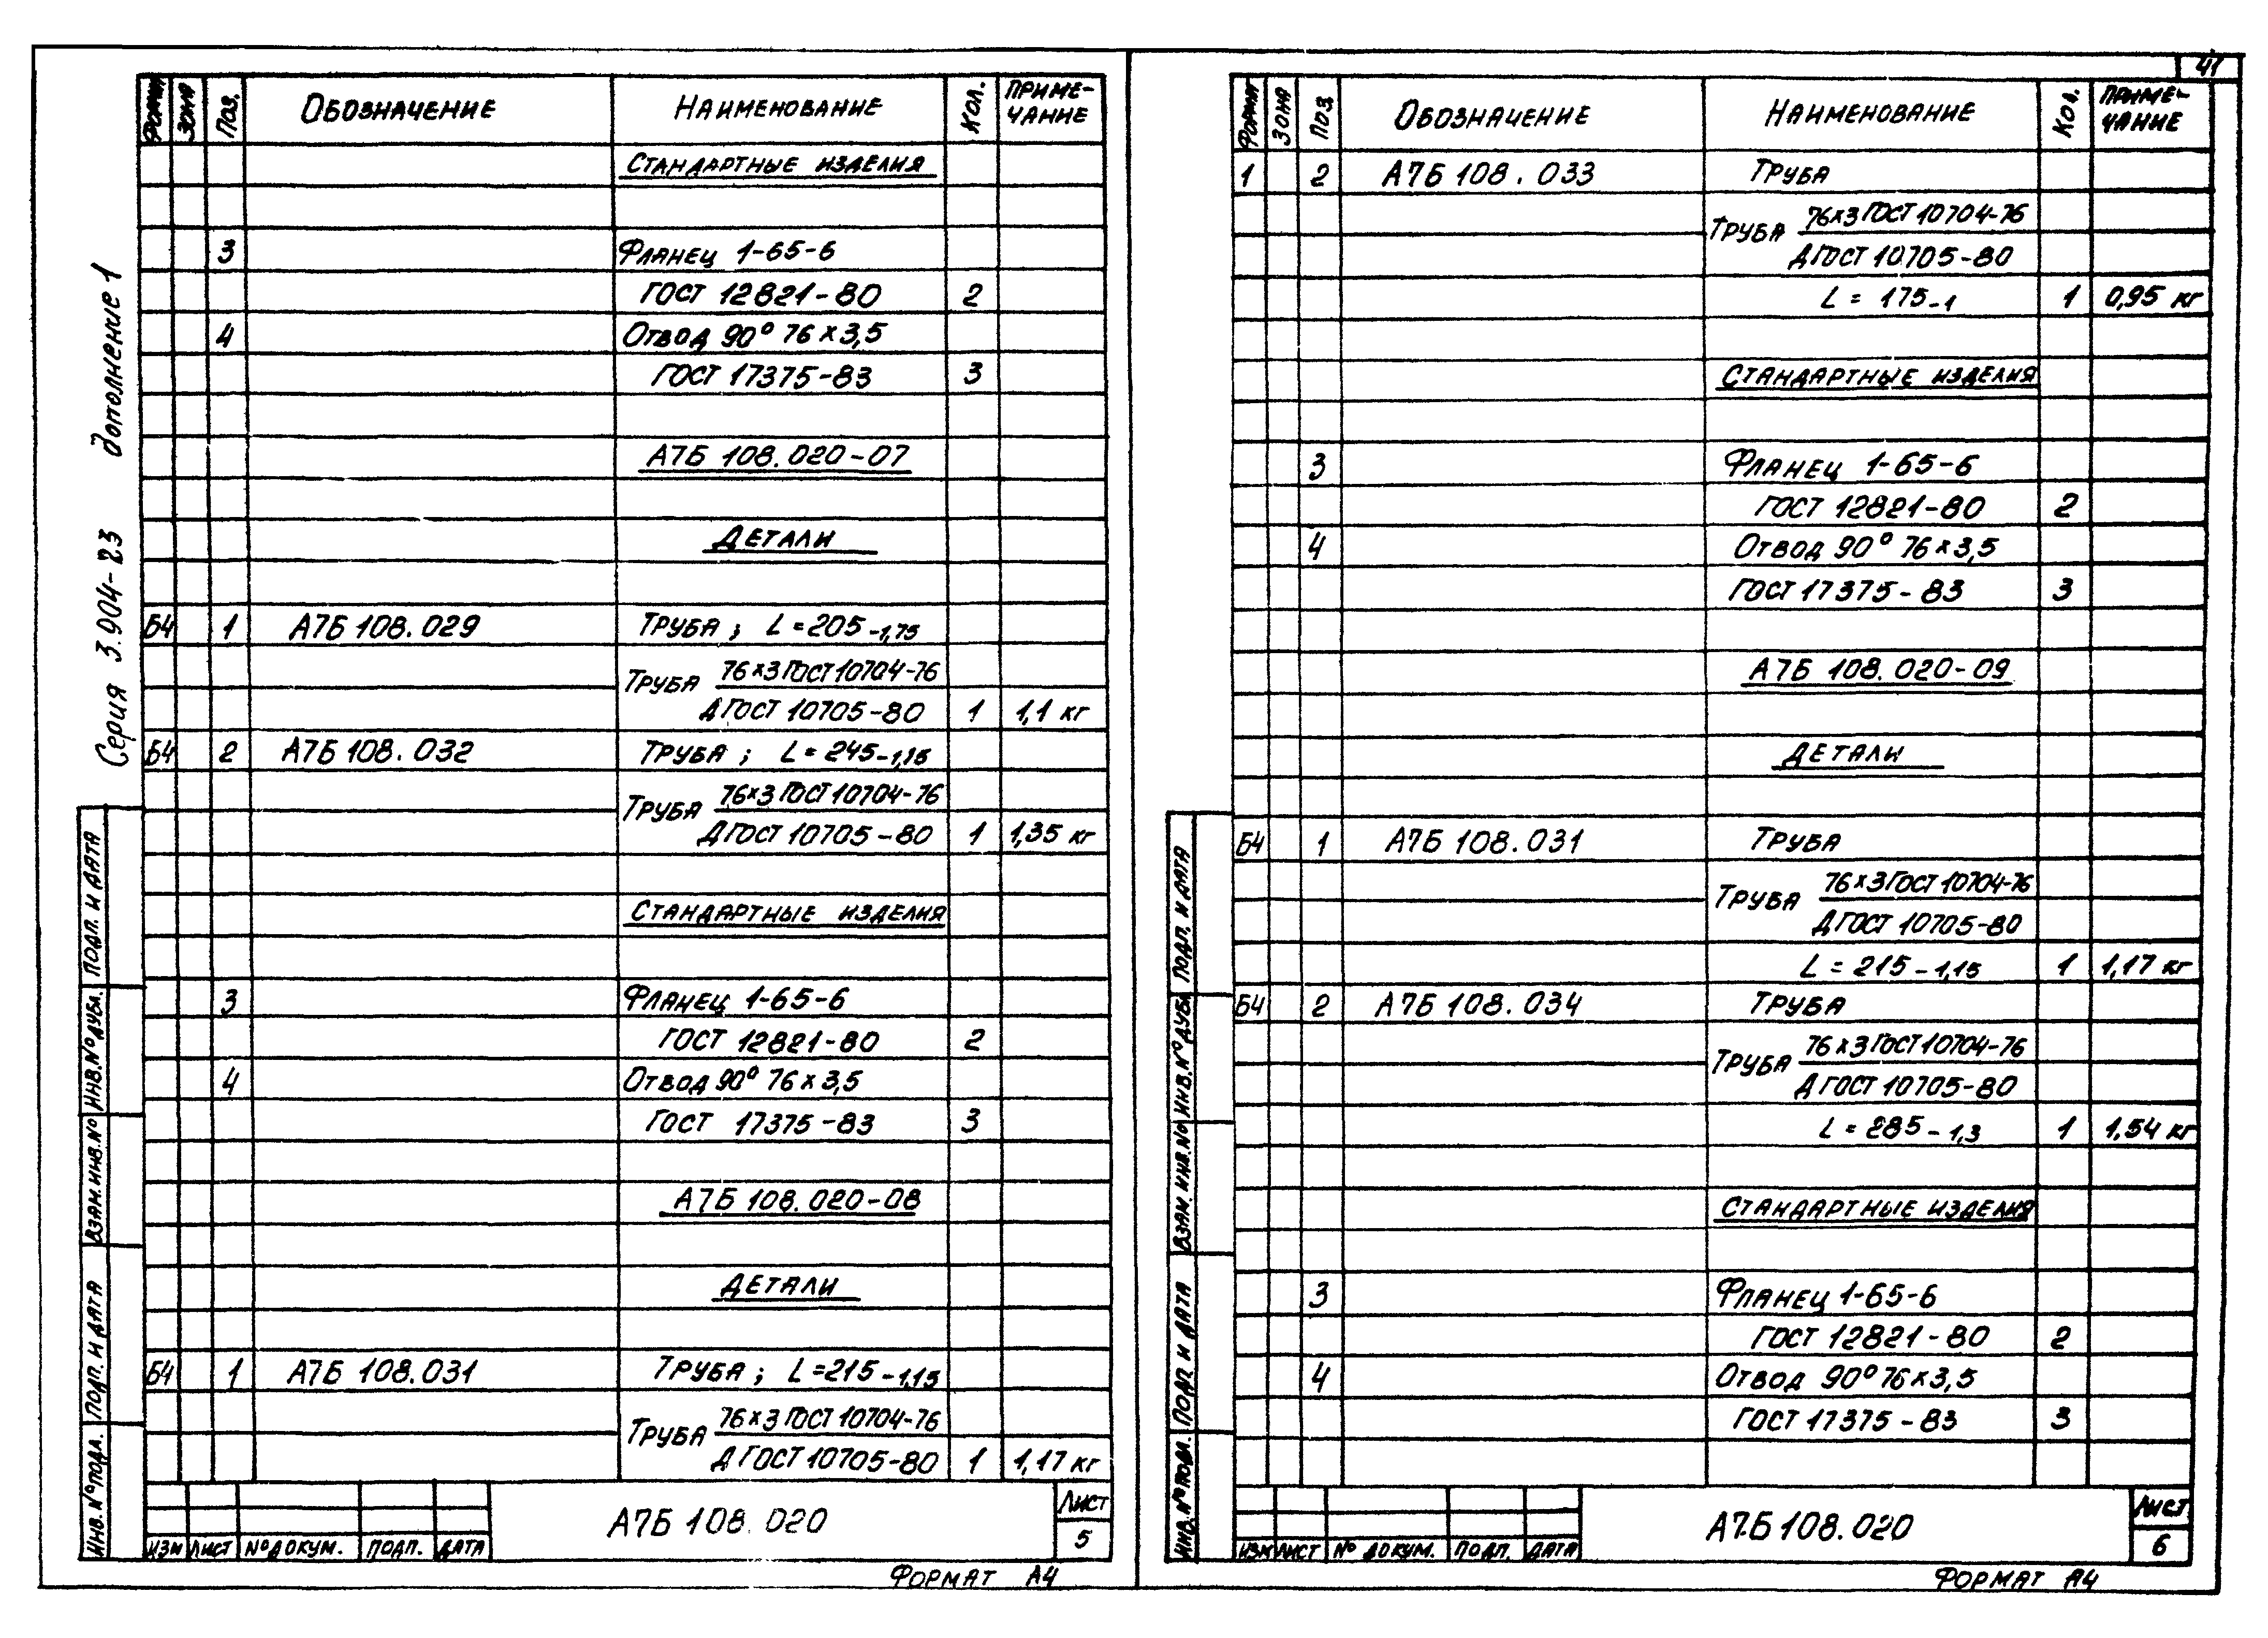 Серия 3.904-23 дополнение 1
ФОРМАТ ЗОНА ПОЗ. ОБОЗНАЧЕНИЕ НАИМЕНОВАНИЕ КОЛ. ПРИМЕ-
ЧАНИЕ
СТАНДАРТНЫЕ ИЗДЕЛИЯ
3 ФЛАНЕЦ 1-65-6
ГОСТ 12821-80 2
4 ОТВОД 90° 76×3,5
ГОСТ 17375-83 3
А7Б 108.020-07
ДЕТАЛИ
Б4 1 А7Б 108.029 ТРУБА; L=205-1,75
ТРУБА 76×3 ГОСТ 10704-76
Д ГОСТ 10705-80 1 1,1 кг
Б4 2 А7Б 108.032 ТРУБА; L=245-1,15
ТРУБА 76×3 ГОСТ 10704-76
Д ГОСТ 10705-80 1 1,35 кг
СТАНДАРТНЫЕ ИЗДЕЛИЯ
3 ФЛАНЕЦ 1-65-6
ГОСТ 12821-80 2
4 ОТВОД 90° 76×3,5
ГОСТ 17375-83 3
А7Б 108.020-08
ДЕТАЛИ
Б4 1 А7Б 108.031 ТРУБА; L=215-1,15
ТРУБА 76×3 ГОСТ 10704-76
Д ГОСТ 10705-80 1 1,17 кг
ПОДП. И ДАТА
ИНВ.№ ДУБЛ.
ВЗАМ.ИНВ.№
ПОДП. И ДАТА
ИНВ.№ ПОДЛ.
ИЗМ ЛИСТ № ДОКУМ. ПОДП. ДАТА
А7Б 108.020
ЛИСТ
5
ФОРМАТ А4
41
ФОРМАТ ЗОНА ПОЗ. ОБОЗНАЧЕНИЕ НАИМЕНОВАНИЕ КОЛ. ПРИМЕ-
ЧАНИЕ
1 2 А7Б 108.033 ТРУБА
ТРУБА 76×3 ГОСТ 10704-76
Д ГОСТ 10705-80
L = 175-1 1 0,95 кг
СТАНДАРТНЫЕ ИЗДЕЛИЯ
3 ФЛАНЕЦ 1-65-6
ГОСТ 12821-80 2
4 ОТВОД 90° 76×3,5
ГОСТ 17375-83 3
А7Б 108.020-09
ДЕТАЛИ
Б4 1 А7Б 108.031 ТРУБА
ТРУБА 76×3 ГОСТ 10704-76
Д ГОСТ 10705-80
L = 215-1,15 1 1,17 кг
Б4 2 А7Б 108.034 ТРУБА
ТРУБА 76×3 ГОСТ 10704-76
Д ГОСТ 10705-80
L = 285-1,3 1 1,54 кг
СТАНДАРТНЫЕ ИЗДЕЛИЯ
3 ФЛАНЕЦ 1-65-6
ГОСТ 12821-80 2
4 ОТВОД 90° 76×3,5
ГОСТ 17375-83 3
ПОДП. И ДАТА
ИНВ.№ ДУБЛ.
ВЗАМ. ИНВ.№
ПОДП. И ДАТА
ИНВ.№ ПОДЛ.
ИЗМ ЛИСТ № ДОКУМ. ПОДП. ДАТА
А7Б 108.020
ЛИСТ
6
ФОРМАТ А4